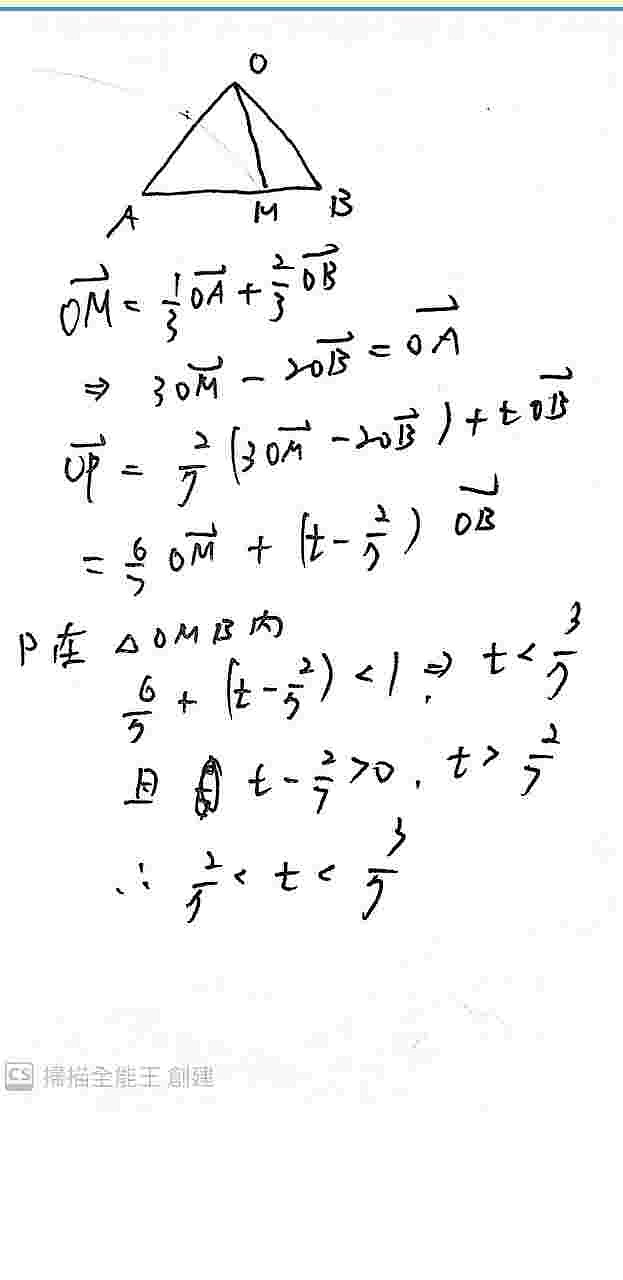 O
A M B
\overrightarrow{OM} = \frac{1}{3}\overrightarrow{OA} + \frac{2}{3}\overrightarrow{OB}
⇒ 3\overrightarrow{OM} - 2\overrightarrow{OB} = \overrightarrow{OA}
\overrightarrow{OP} = \frac{2}{7}(3\overrightarrow{OM} - 2\overrightarrow{OB}) + t\overrightarrow{OB}
= \frac{6}{7}\overrightarrow{OM} + (t - \frac{2}{7})\overrightarrow{OB}
P在△OMB內
\frac{6}{7} + (t - \frac{2}{7}) < 1 ⇒ t < \frac{3}{7}
且 t - \frac{2}{7} > 0, t > \frac{2}{7}
∴ \frac{2}{7} < t < \frac{3}{7}
CS 掃描全能王 創建